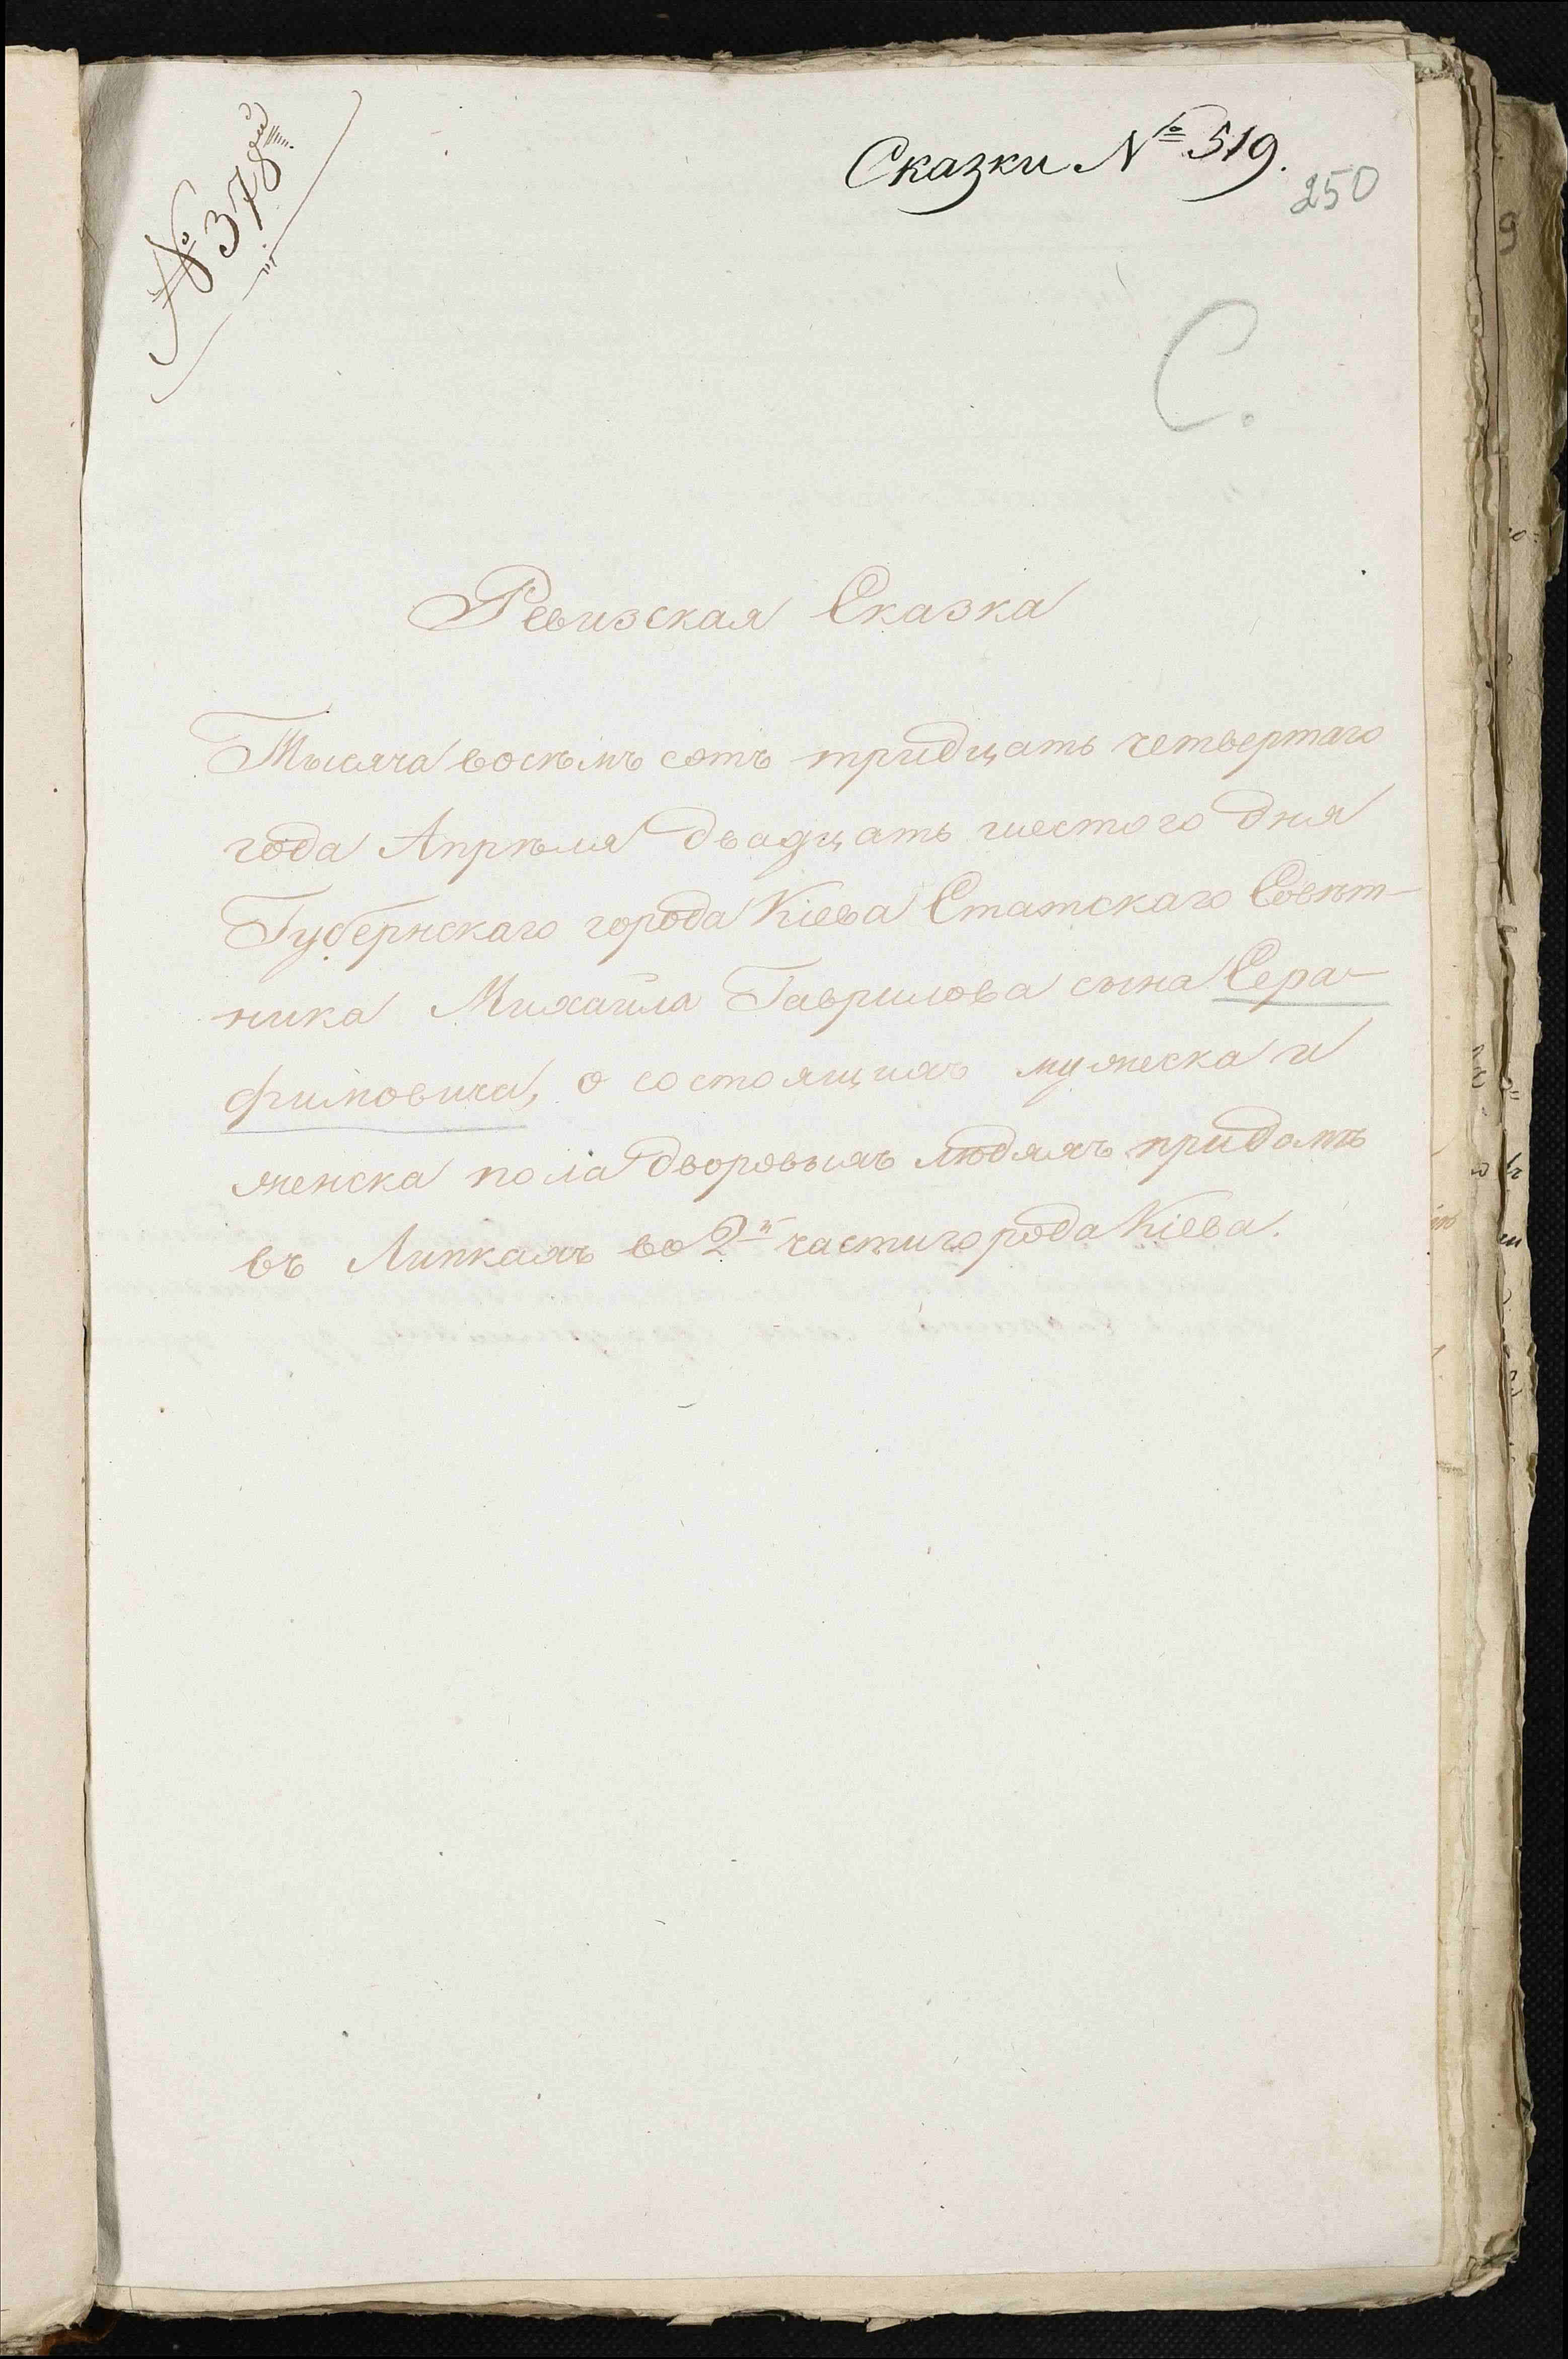 № 378й
Сказки № 519.
250
С.
Ревизская Сказка
Тысяча восемъ сотъ тридцать четвертаго
года Апрѣля двадцать шестого дня
Губернскаго города Кіева Статскаго Совѣт-
ника Михаила Гаврилова сына Сера-
фимовича, о состоящихъ мужеска и
женска пола дворовыхъ людяхъ придомѣ
въ Липкахъ во 2й части города Кіева.